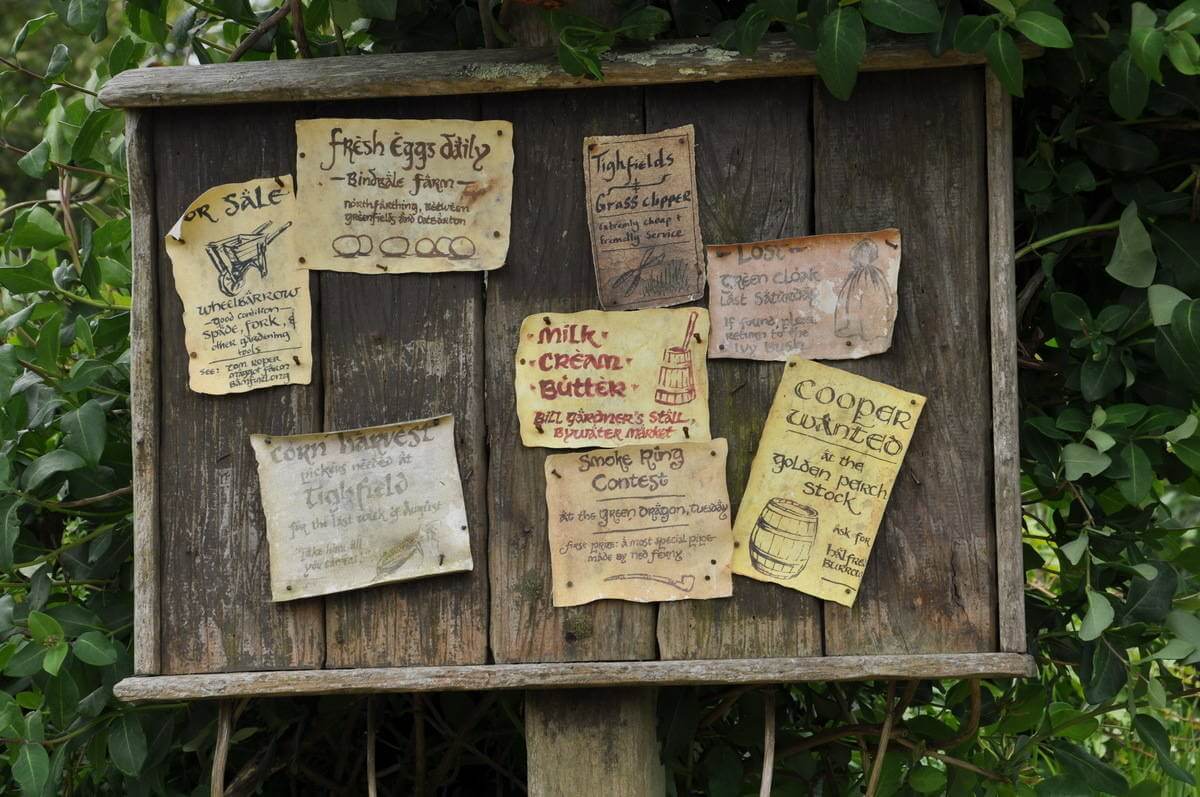 OR SALE
WHEELBARROW
good condition
SPADE, FORK, &
other gardening
tools
SEE: TOM ROPER
MAGGOT FARM
BAMFURLONG
FRESH EGGS DAILY
BINDBALE FARM
NORTHFARTHING, BETWEEN
GREENFIELDS AND OATBARTON
Tighfields
Grass Clipper
Extremely cheap &
friendly service
LOST
GREEN CLOAK
LAST SATURDAY
If found, please
return to the
Ivy Bush
MILK
CREAM
BUTTER
BILL GARDNER'S STALL,
BYWATER MARKET
CORN HARVEST
PICKERS NEEDED AT
TIGHFIELD
FOR THE LAST WEEK OF AUGUST
Take home all
you can eat!
Smoke Ring
Contest
At the GREEN DRAGON, TUESDAY
FIRST PRIZE: A MOST SPECIAL PIPE
MADE BY TED
COOPER
WANTED
At the
golden perch
STOCK
ASK FOR
BURROW